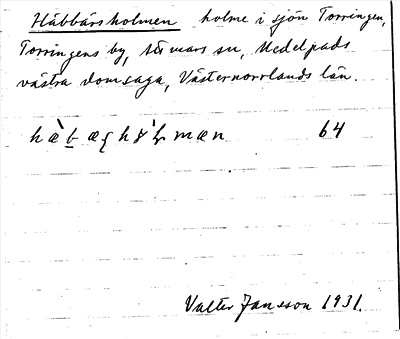 Häbbärsholmen holme i sjön Torringen,
Torringens by, sn, Medelpads
västra domsaga, Västernorrlands län.
64
Valter Jansson 1931.